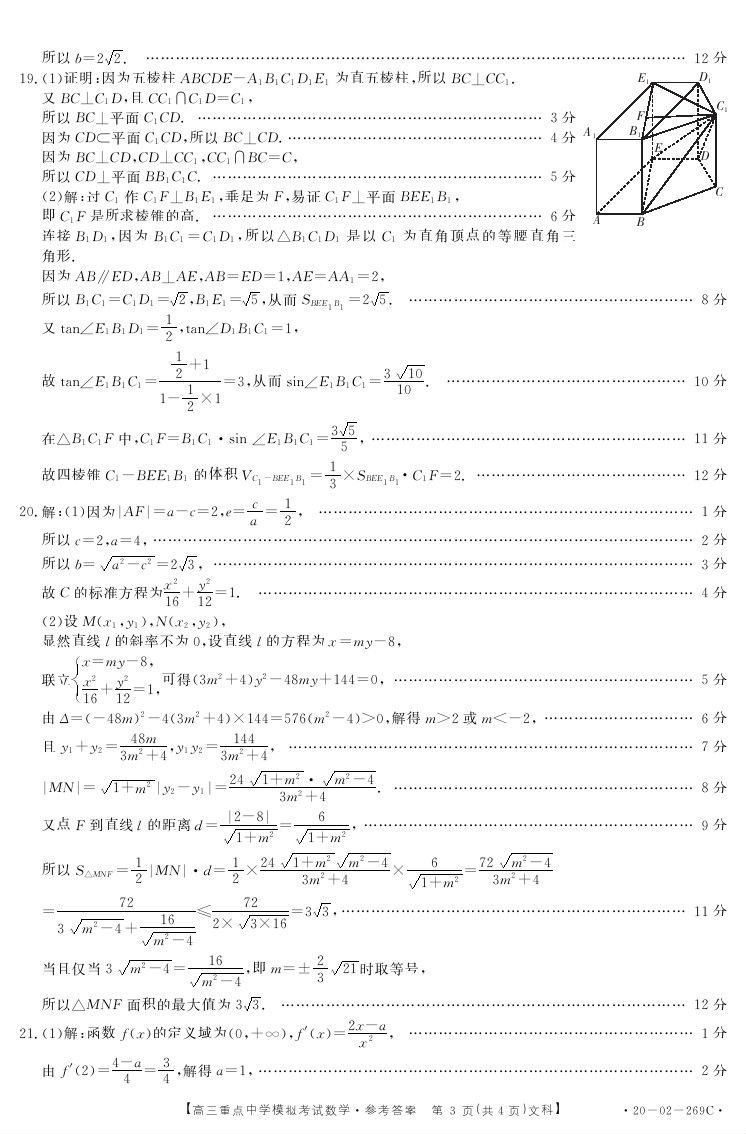 所以 b=2√2. …… 12 分
19. (1)证明:因为五棱柱 ABCDE-A₁B₁C₁D₁E₁ 为直五棱柱,所以 BC⊥CC₁.
又 BC⊥C₁D,且 CC₁∩C₁D=C₁,
所以 BC⊥平面 C₁CD. …… 3 分
因为 CD⊂平面 C₁CD,所以 BC⊥CD. …… 4 分
因为 BC⊥CD,CD⊥CC₁,CC₁∩BC=C,
所以 CD⊥平面 BB₁C₁C. …… 5 分
(2)解:过 C₁ 作 C₁F⊥B₁E₁,垂足为 F,易证 C₁F⊥平面 BEE₁B₁,
即 C₁F 是所求棱锥的高. …… 6 分
连接 B₁D₁,因为 B₁C₁=C₁D₁,所以△B₁C₁D₁ 是以 C₁ 为直角顶点的等腰直角三
角形.
因为 AB∥ED,AB⊥AE,AB=ED=1,AE=AA₁=2,
所以 B₁C₁=C₁D₁=√2,B₁E₁=√5,从而 S_{BEE₁B₁}=2√5. …… 8 分
又 tan∠E₁B₁D₁=1/2,tan∠D₁B₁C₁=1,
故 tan∠E₁B₁C₁=(1/2+1)/(1-1/2×1)=3,从而 sin∠E₁B₁C₁=3√10/10. …… 10 分
在△B₁C₁F 中,C₁F=B₁C₁·sin ∠E₁B₁C₁=3√5/5, …… 11 分
故四棱锥 C₁-BEE₁B₁ 的体积 V_{C₁-BEE₁B₁}=1/3×S_{BEE₁B₁}·C₁F=2. …… 12 分
E₁ D₁
C₁
F
A₁ B₁
E D
C
A B
20. 解:(1)因为|AF|=a-c=2,e=c/a=1/2, …… 1 分
所以 c=2,a=4, …… 2 分
所以 b=√(a²-c²)=2√3, …… 3 分
故 C 的标准方程为x²/16+y²/12=1. …… 4 分
(2)设 M(x₁,y₁),N(x₂,y₂),
显然直线 l 的斜率不为 0,设直线 l 的方程为 x=my-8,
联立{x=my-8, x²/16+y²/12=1,可得(3m²+4)y²-48my+144=0, …… 5 分
由 Δ=(-48m)²-4(3m²+4)×144=576(m²-4)>0,解得 m>2 或 m<-2, …… 6 分
且 y₁+y₂=48m/(3m²+4),y₁y₂=144/(3m²+4), …… 7 分
|MN|=√(1+m²)|y₂-y₁|=24√(1+m²)·√(m²-4)/(3m²+4). …… 8 分
又点 F 到直线 l 的距离 d=|2-8|/√(1+m²)=6/√(1+m²), …… 9 分
所以 S_{△MNF}=1/2|MN|·d=1/2×24√(1+m²)√(m²-4)/(3m²+4)×6/√(1+m²)=72√(m²-4)/(3m²+4)
=72/(3√(m²-4)+16/√(m²-4))≤72/(2×√(3×16))=3√3, …… 11 分
当且仅当 3√(m²-4)=16/√(m²-4),即 m=±2/3√21时取等号,
所以△MNF 面积的最大值为 3√3. …… 12 分
21. (1)解:函数 f(x)的定义域为(0,+∞),f′(x)=(2x-a)/x², …… 1 分
由 f′(2)=(4-a)/4=3/4,解得 a=1, …… 2 分
【高三重点中学模拟考试数学·参考答案 第 3 页(共 4 页)文科】 ·20-02-269C·